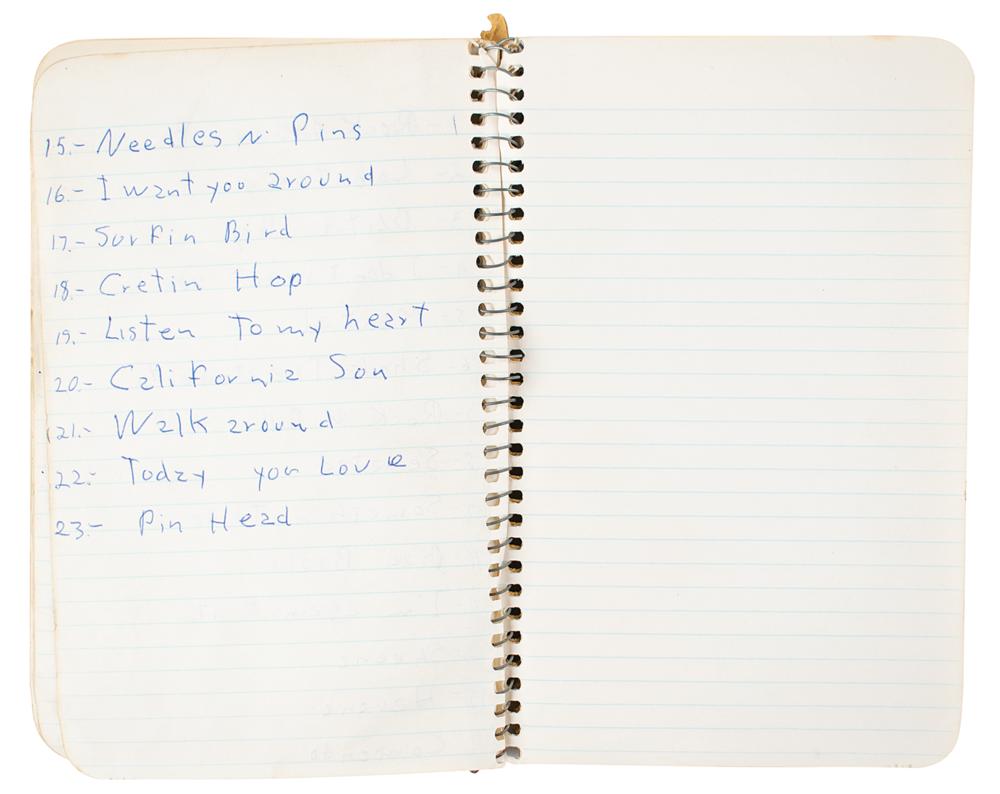 15.- Needles N. Pins
16.- I want you around
17.- Surfin Bird
18.- Cretin Hop
19.- Listen To my heart
20.- California Sun
21.- Walk around
22.- Today you Love
23.- Pin Head